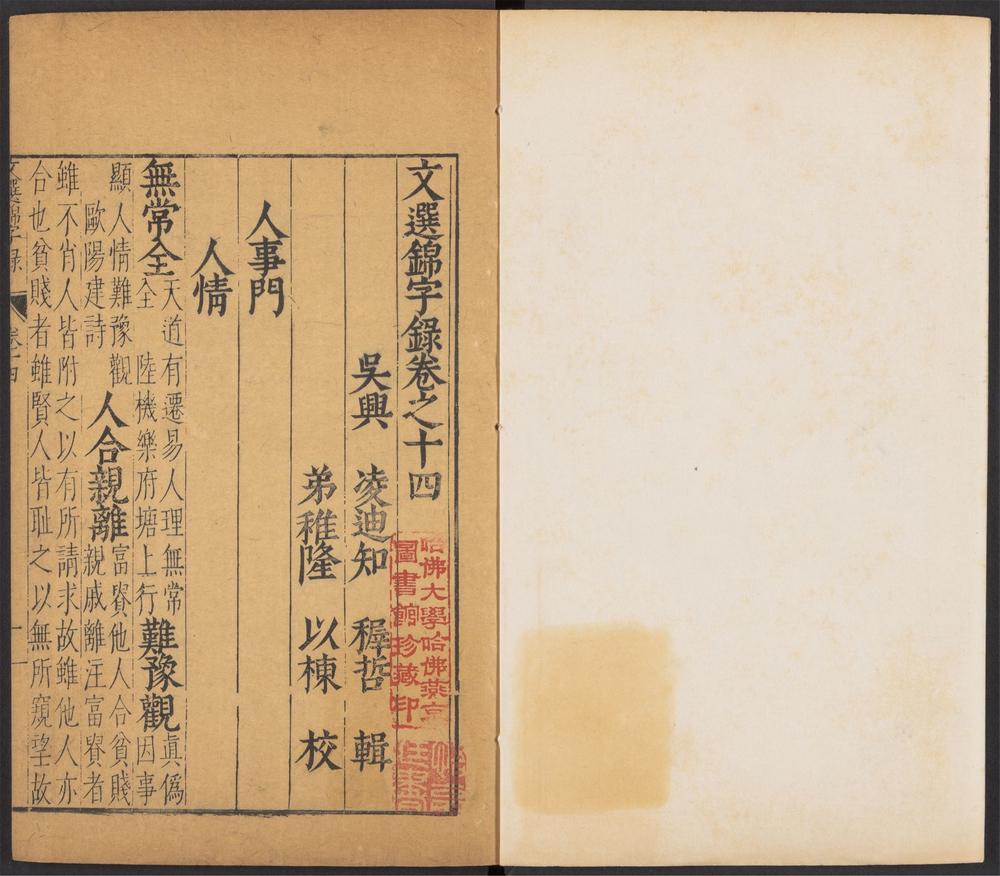 文選錦字錄卷之十四
吳興 凌迪知 穉哲 輯
弟稚隆 以棟 校
人事門
人情
無常全 天道有遷易人理無常全 陸機樂府塘上行 難豫觀 真偽因事
顯人情難豫觀歐陽建詩 人合親離 富貴他人合貧賤親戚離注富貴者
雖不肖人皆附之以有所請求故雖他人亦
合也貧賤者雖賢人皆耻之以無所窺望故
文選錦字錄 卷十四 一
哈佛大學哈佛燕京
圖書館珍藏印